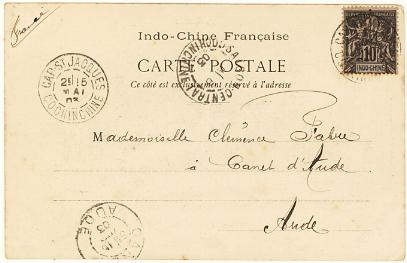 France
Indo-Chine Française
CARTE POSTALE
Ce côté est exclusivement réservé à l'adresse
10
INDO-CHINE
CAP ST JACQUES
25 15
MAI
03
COCHINCHINE
SAIGON CENTRAL
COCHINCHINE
Mademoiselle Clémence Fabre
à Canet d'Aude
Aude
AUDE
03